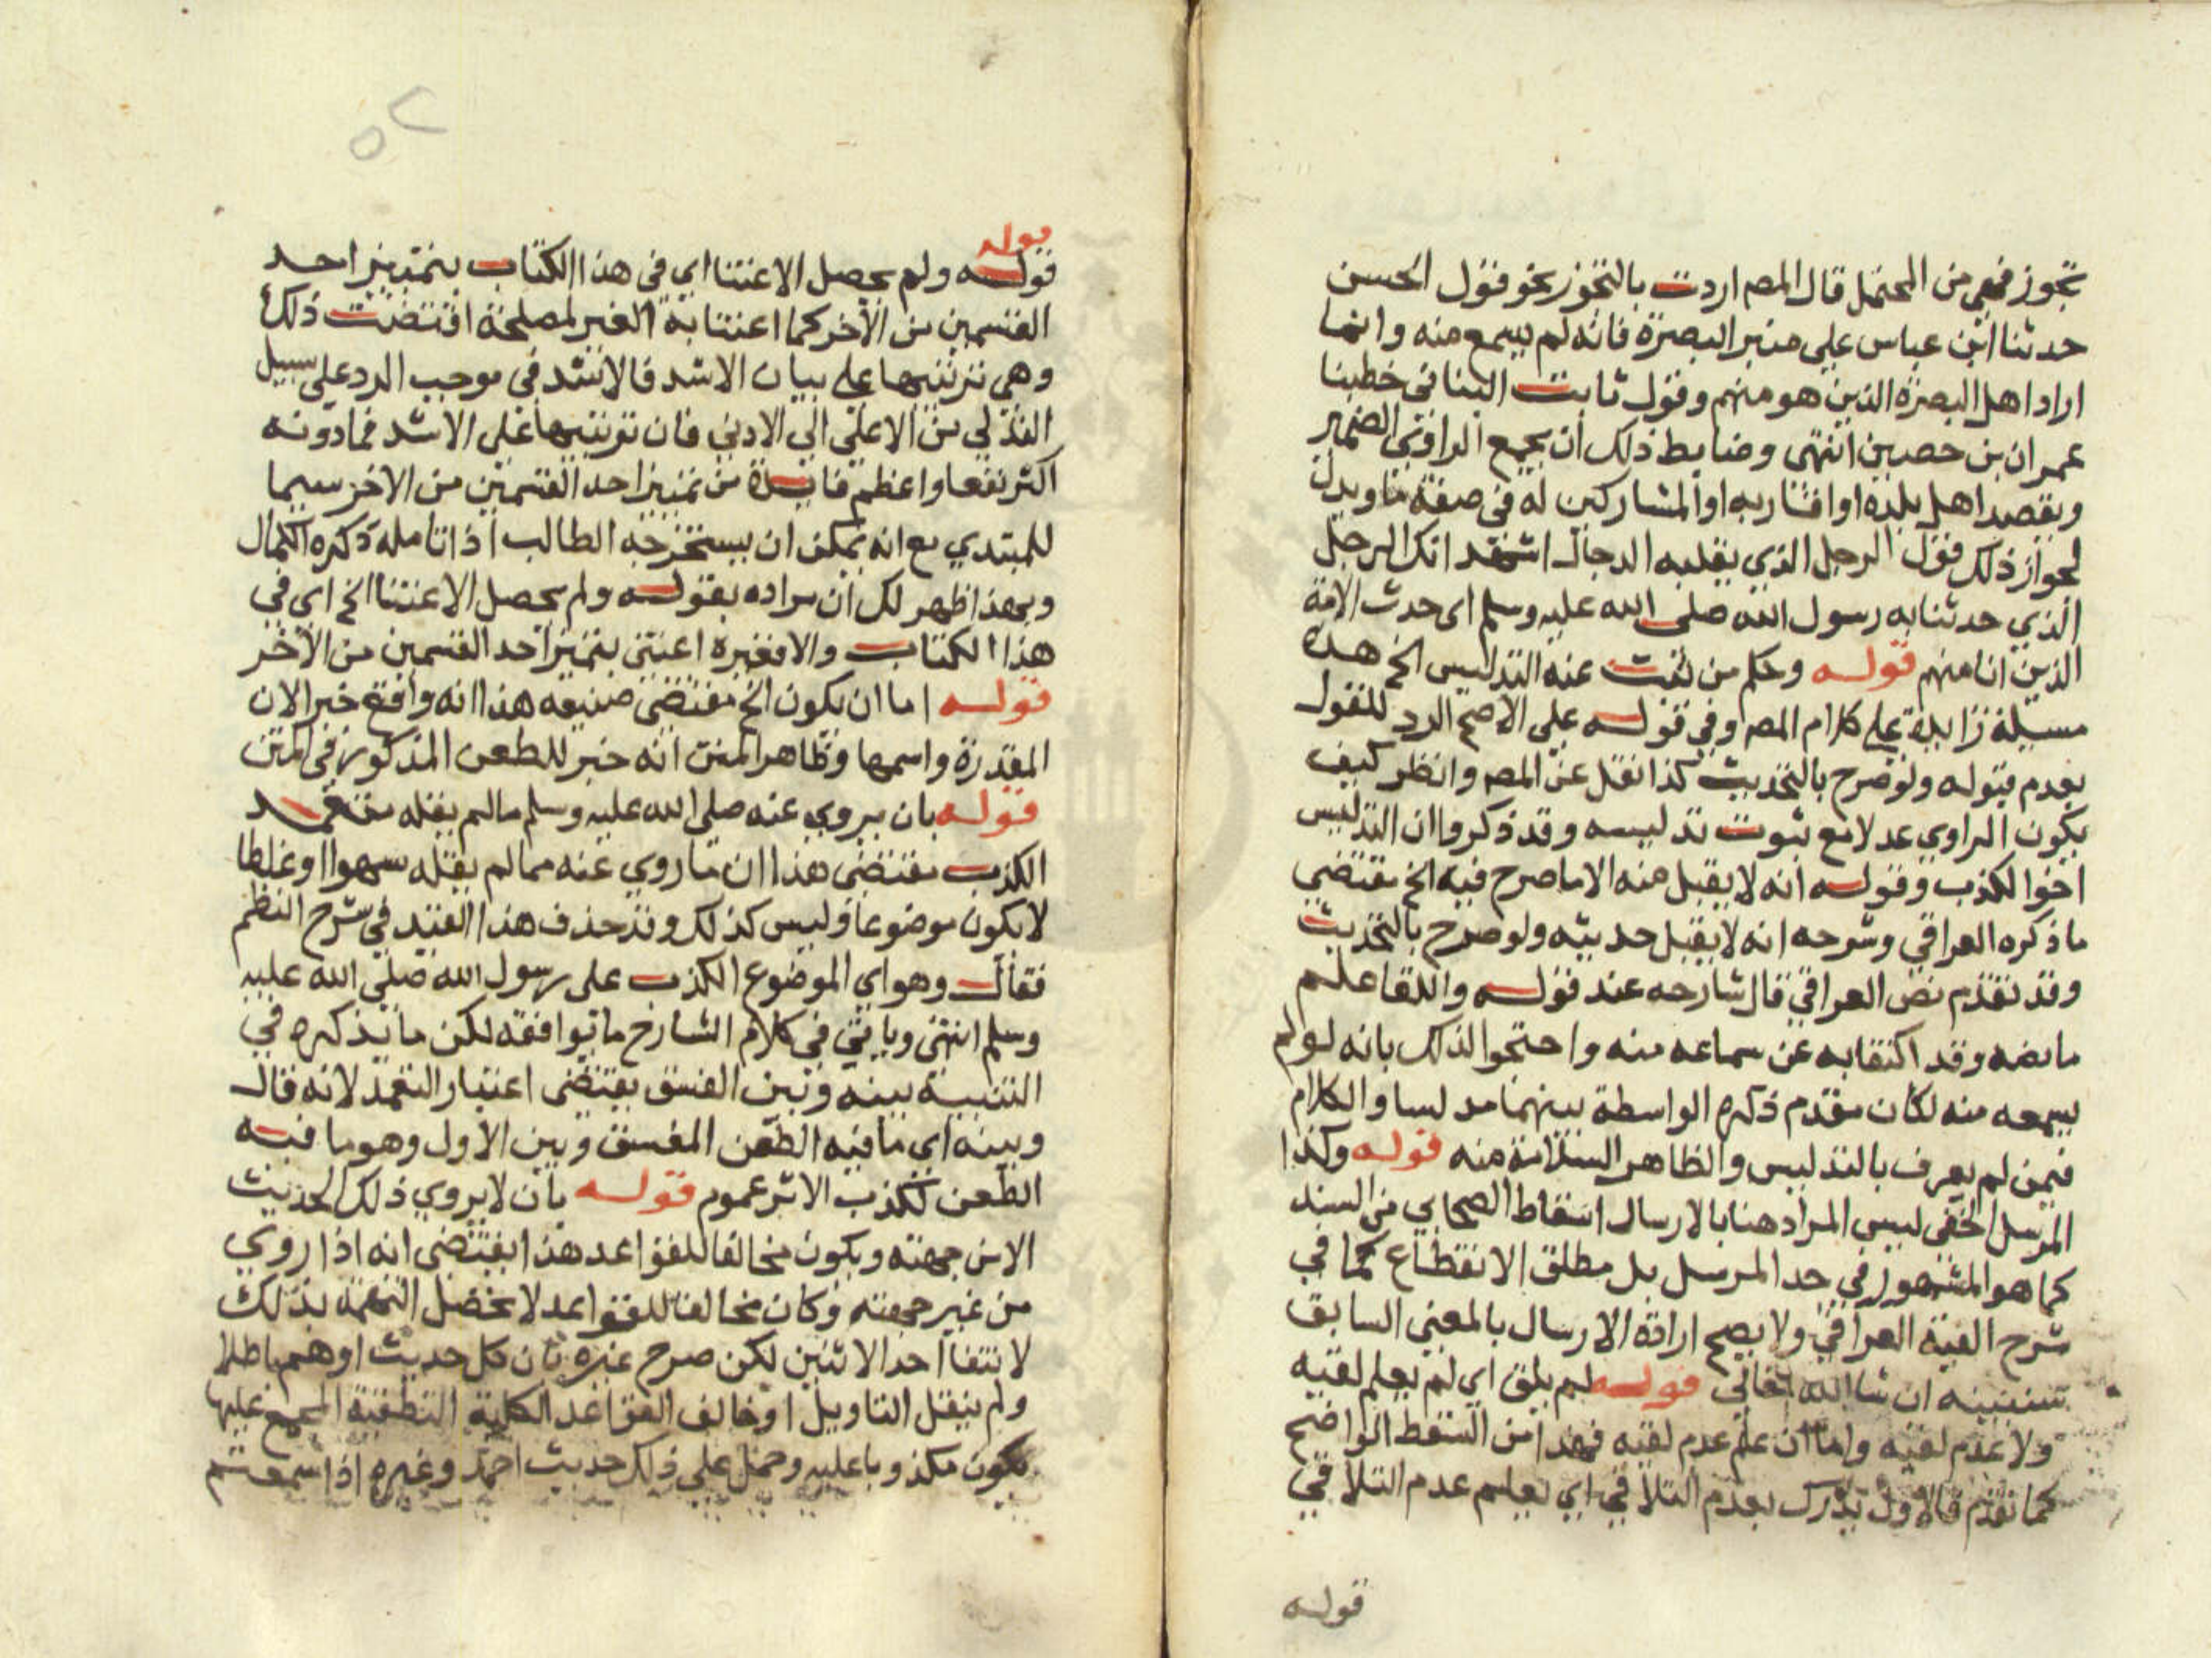 تجوز فهي من المحتمل قال المصم اردت بالتجوز نحو قول الحسن
حدثنا ابن عباس علي منبر البصرة فانه لم يسمع منه وانما
اراد اهل البصرة الذين هو منهم وقول ثابت البناني خطبنا
عمران بن حصين انتهى وضابط ذلك ان يجمع الراوي الضمير
ويقصد اهل بلده او اقاربه او المشاركين له في صفة ما ويدل
لجواز ذلك قول الرجل الذي يقلبه الدجال اشهد انك الرجل
الذي حدثنا به رسول الله صلى الله عليه وسلم اي حدث الامة
الذين انا منهم قوله وحكم من ثبت عنه التدليس الخ هذه
مسيلة زايدة علي كلام المصم وفي قوله علي الاصح الرد للقول
بعدم قبوله ولو صرح بالتحديث كذا نقل عن المصم وانظر كيف
يكون الراوي عدلا مع ثبوت تدليسه وقد ذكروا ان التدليس
اخوا الكذب وقوله انه لا يقبل منه الا ما صرح فيه الخ مقتضي
ما ذكره العراقي وشرحه انه لا يقبل حديثه ولو صرح بالتحديث
وقد تقدم نص العراقي قال شارحه عند قوله واللقا علم
ما نصه وقد اكتفا به عن سماعه منه واحتجوا لذلك بانه لو لم
يسمعه منه لكان بعدم ذكره الواسطة بينهما مدلسا والكلام
فيمن لم يعرف بالتدليس والظاهر السلامة منه قوله وكذا
المرسل الخفي ليس المراد هنا بالارسال اسقاط الصحابي من السند
كما هو المشهور في حد المرسل بل مطلق الانقطاع كما في
شرح الفية العراقي ولا يصح ارادة الارسال بالمعني السابق
ستبينه ان شا الله تعالى قوله لم يلق اي لم يعلم لقيه
ولا عدم لقيه واما ان علم عدم لقيه فهذا من السقط الواضح
كما تقدم قالاول يدرك بعدم التلاقي اي يعلم عدم التلاقي
قوله
قوله
قوله ولم يحصل الاعتنا اي في هذا الكتاب بتمييز احد
القسمين من الاخر كما اعتنا به الغير لمصلحة اقتضت ذلك
وهي ترتيبها علي بيان الاشد فالاشد في موجب الرد علي سبيل
التدلي من الاعلي الي الادني فان ترتيبها علي الاشد فما دونه
اكثر نفعا واعظم فايدة من تمييز احد القسمين من الاخر سيما
للمبتدي مع انه يمكن ان يستخرجه الطالب اذا تامله ذكره الكمال
وبهذا ظهر لك ان مراده بقوله ولم يحصل الاعتنا الخ اي في
هذا الكتاب والا فغيره اعتني بتمييز احد القسمين من الاخر
قوله اما ان يكون الخ مقتضي صنيعه هذا انه واقع خبر الان
المقدرة واسمها وظاهر المتن انه خبر للطعن المذكور في المتن
قوله بان يروي عنه صلي الله عليه وسلم ما لم يقله متعمد
الكذب مقتضي هذا ان ما روي عنه مما لم يقله سهوا او غلطا
لا يكون موضوعا وليس كذلك وقد حذف هذا القيد في شرح النظم
فقال وهو اي الموضوع الكذب على رسول الله صلي الله عليه
وسلم انتهى وياتي في كلام الشارح ما يوافقه لكن ما يذكره في
النسبة بينه وبين الفسق يقتضي اعتبار التعمد لانه قال
وبينه اي ما فيه الطعن المفسق وبين الاول وهو ما فيه
الطعن بكذب الاثر عموم قوله بان لا يروي ذلك الحديث
الا من جهته ويكون مخالفا للقواعد هذا يقتضي انه اذا روي
من غير جهته وكان مخالفا للقواعد لا تحصل التهمة بذلك
لانتفا احد الاثنين لكن صرح غيره بان كل حديث اوهم باطلا
ولم يقبل التاويل او خالف القواعد الكلية القطعية المجمع عليها
يكون مكذوبا عليه وحمل علي ذلك حديث احمد وغيره اذا سمعتم